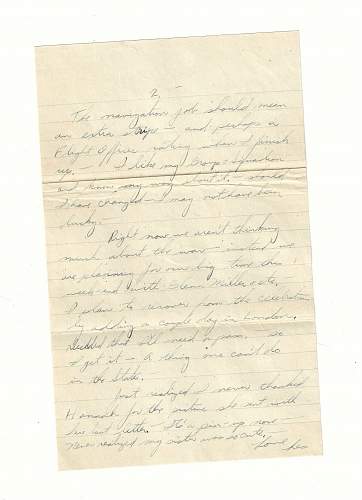 2 -
The navigation job should mean
an extra stripe - and perhaps a
Flight Officer rating when I finish
up. I like my Group + Squadron
and know very many about it - should
I have changed - I may not have been
lucky.
Right now we aren't thinking
much about the war - instead we
are planning for our big time this
week-end with Glenn Miller
I plan to recover from the celebration
by adding a couple day in London.
Decided that I'll need a pass. - so
I get it - A thing one can't do
in the States.
Just realized I never thanked
Hannah for the picture she sent with
her last letter. It's a pin-up now
Never realized my sister was so cute.
Love
Leo